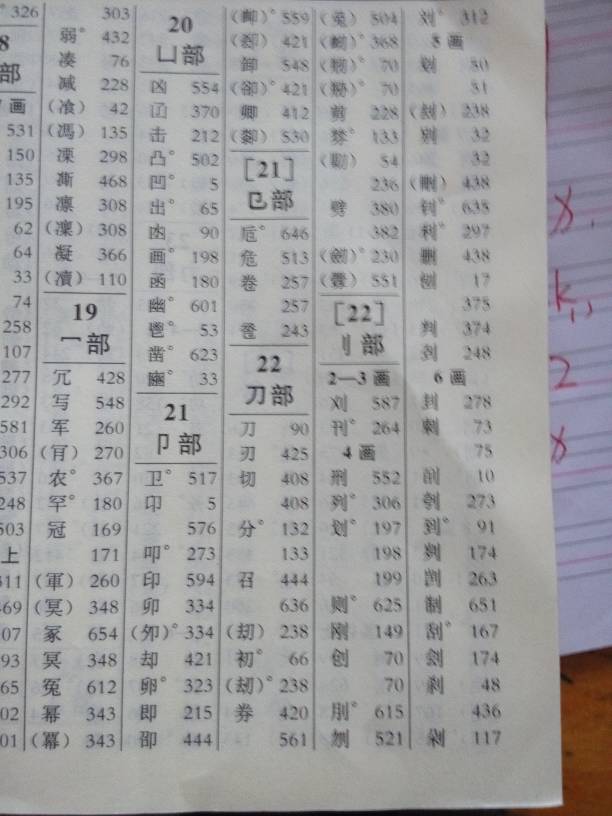 326
8
部
画
531
150
135
195
62
64
33
74
258
107
277
292
581
306
537
248
503
上
311
469
07
93
65
02
01
303
弱° 432
凑 76
减 228
(飡) 42
(馮) 135
凓 298
凘 468
凛 308
(凜) 308
凝 366
(凟) 110
19
冖部
冗 428
写 548
军 260
(肎) 270
农° 367
罕° 180
冠 169
171
(軍) 260
(冥) 348
冢 654
冥 348
冤 612
幂 343
(冪) 343
20
凵部
凶 554
击 212
凸° 502
凹° 5
出° 65
画° 198
函 180
幽° 601
鬯° 53
凿° 623
豳° 33
21
卩部
卫° 517
卬 5
576
叩° 273
印 594
卯 334
(夘)° 334
却 421
卵° 323
即 215
卲 444
559
421
卸 548
(卻)° 421
卿 412
530
[21]
㔾部
卮° 646
危 513
卷 257
257
卺 243
22
刀部
刀 90
刃 425
切 408
408
分° 132
133
召 444
636
(刧) 238
初° 66
(刼)° 238
券 420
561
504
368
70
70
剪 228
棼° 133
54
236
劈 380
382
230
551
[22]
刂部
2—3 画
刈 587
刊° 264
4 画
刑 552
列° 306
划° 197
198
199
则° 625
刚 149
创 70
70
刖° 615
刎 521
刘° 312
5 画
刬 80
31
(刦) 238
别 32
32
(刪) 438
钊° 635
利° 297
删 438
刨 17
375
判 374
刭 248
6 画
刲 278
刺 73
75
刮 10
刳 273
到° 91
刿 174
剀 263
制 651
刮° 167
刽 174
刹 48
436
剁 117
x.
2
x